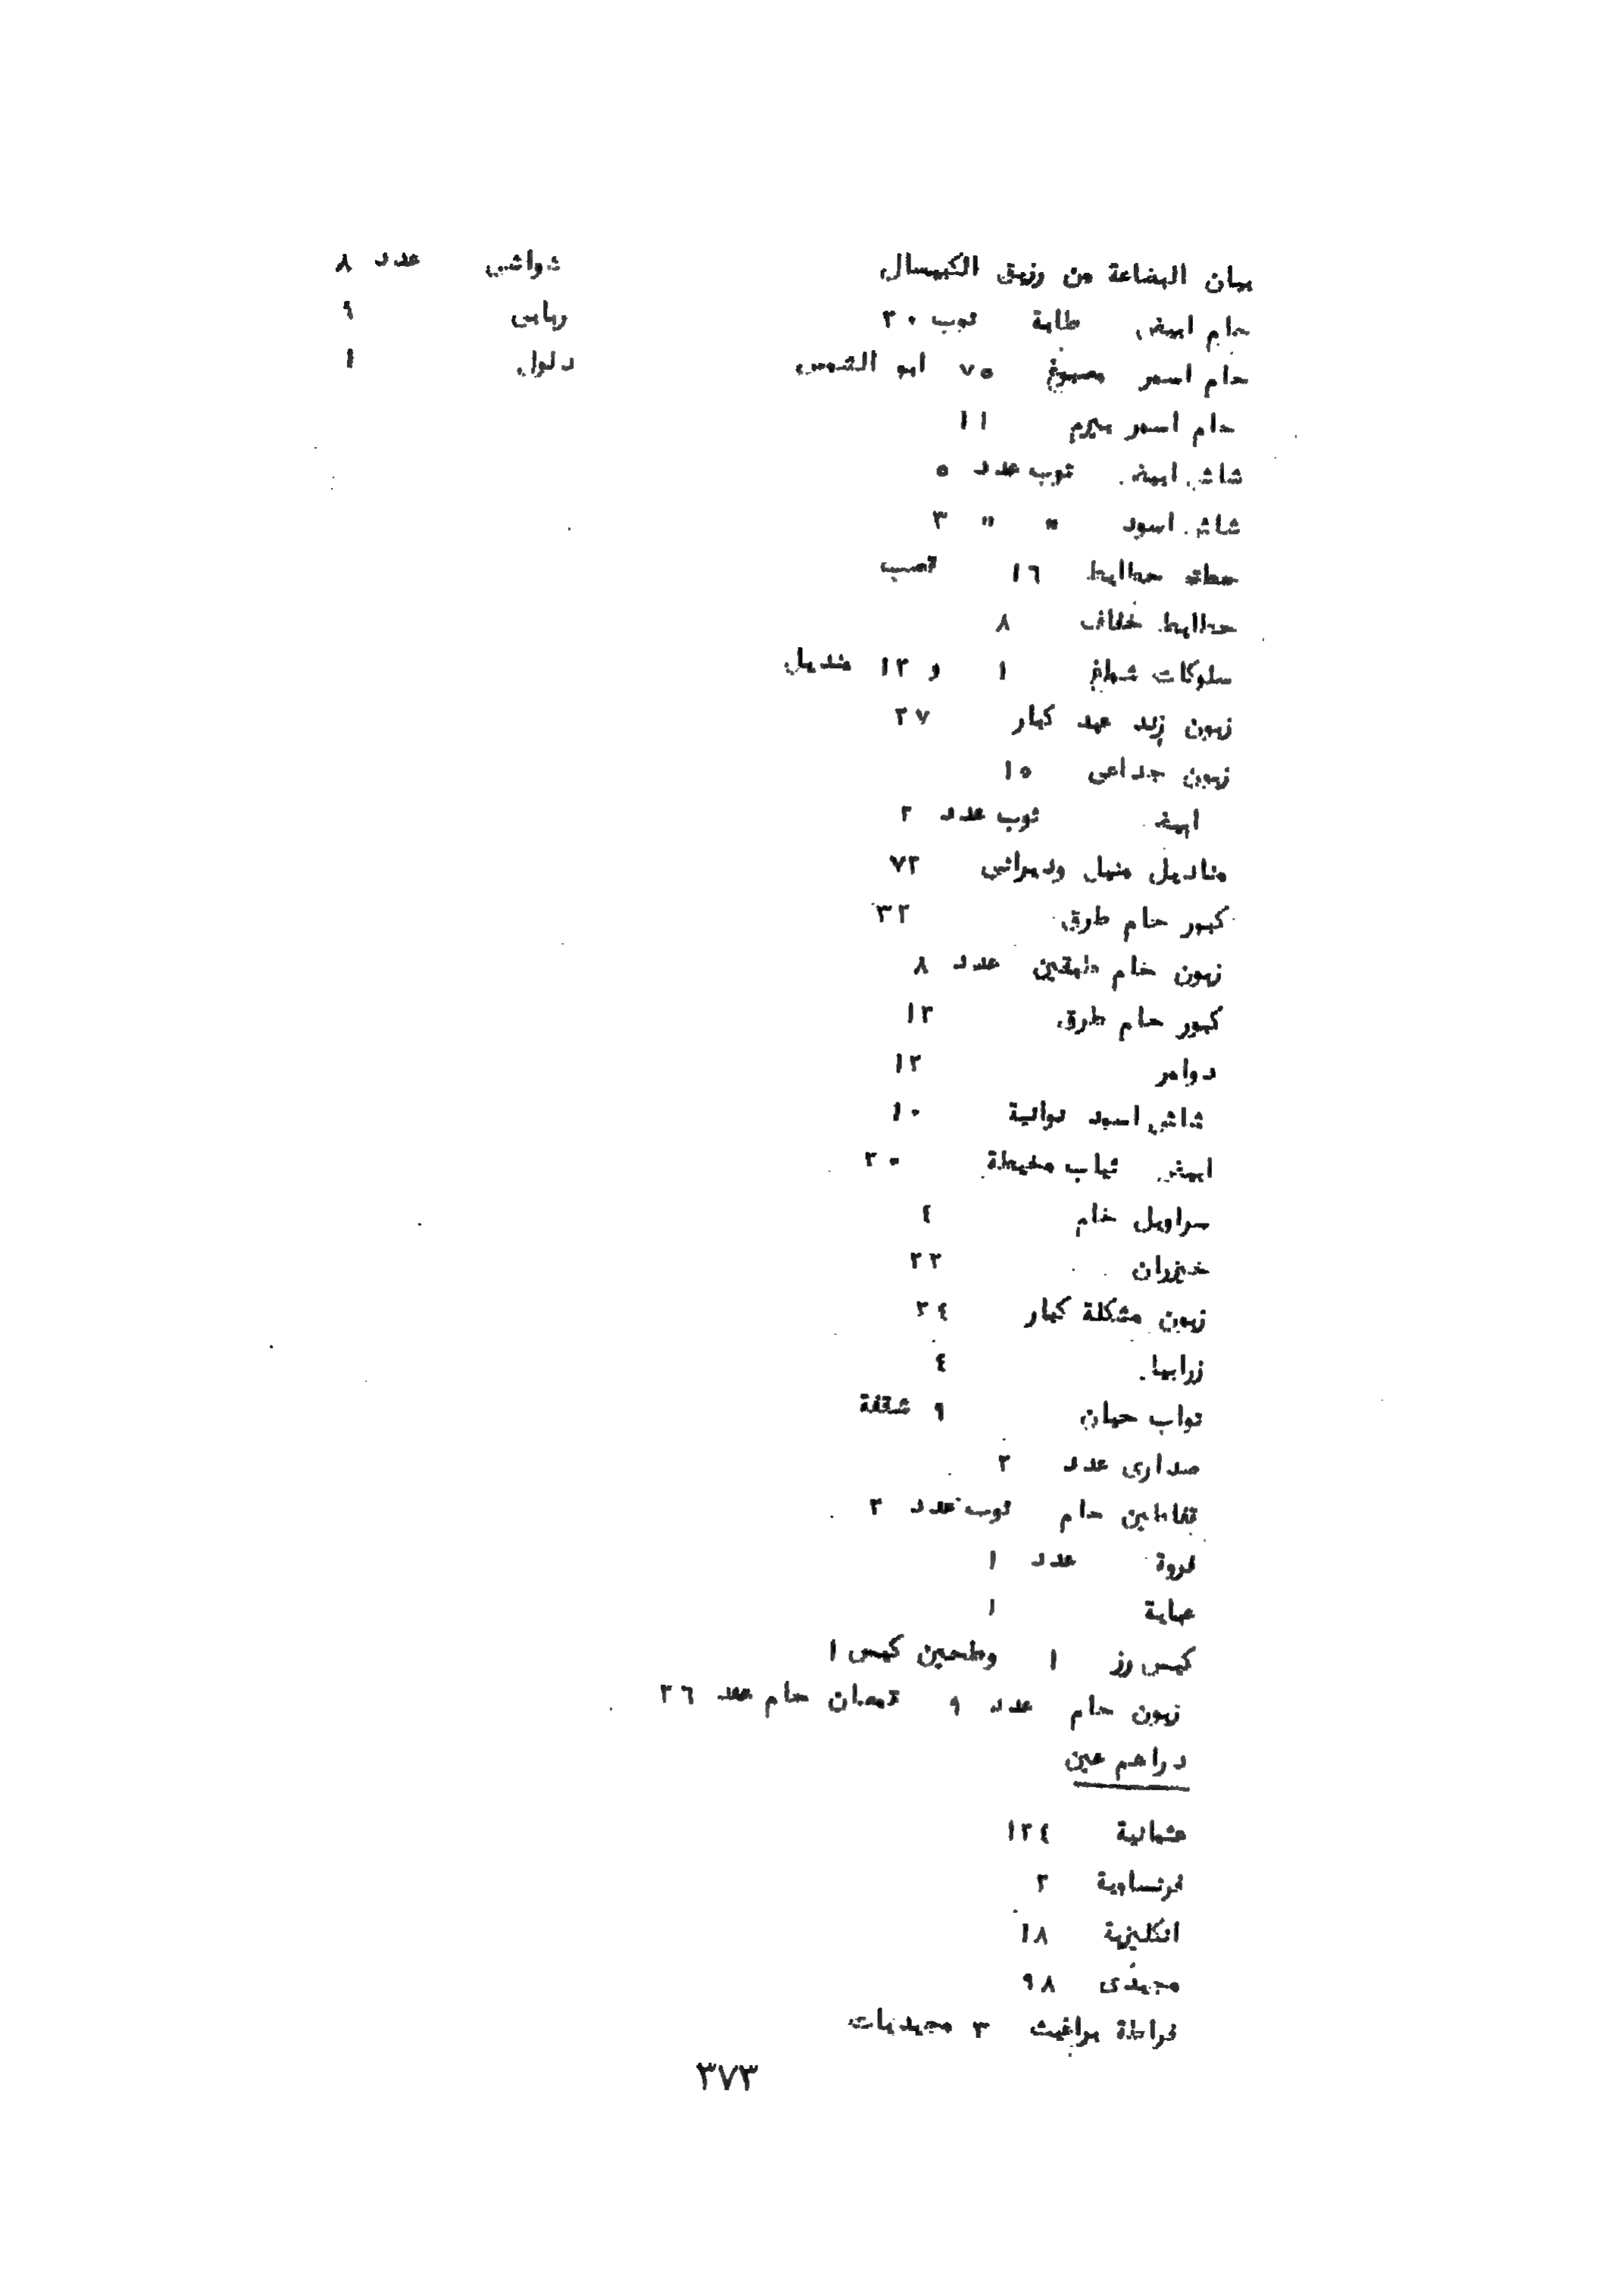 بيان البضاعة من رزيق الكبيسالي
خام ابيض طابة ثوب ٢٠
خام اسمر مصبوغ ٧٥ ابو الشوس
خام اسمر بيرم ١١
شاش ابيض ثوب عدد ٥
شاش اسود " " ٣
حطاليط ١٦ قصب
حطاليط خفاف ٨
سلوكات شماغ ١ و ١٢ منديل
زبون زند عبد كبار ٢٧
زبون جداعي ١٥
ابيض ثوب عدد ٢
مناديل منيل ٧٢
كبور خام طرق ٣٢
زبون خام طبقين عدد ٨
كبور خام طرق ١٢
دوامر ١٢
شاش اسود توانية ١٠
ابيض ثياب مخيطة ٢٠
سراويل خام ٤
خيزران ٢٢
زبون مشكلة كبار ٢٤
زرابيا ٤
ثواب حيان ٩ شقفة
صداري عدد ٢
تفاطين خام ثوب عدد ٢
فروة عدد ١
عباية ١
كيس رز ١ وطحين كيس ١
زبون خام عدد ٩ قمصان خام عدد ٢٦
دراهم عين
عثمانية ١٢٤
فرنساوية ٢
انكليزية ١٨
مجيدى ٩٨
فراطة براغيث ٣ مجيديات
شواشي عدد ٨
ربابي ٩
دلول ١
٣٧٣